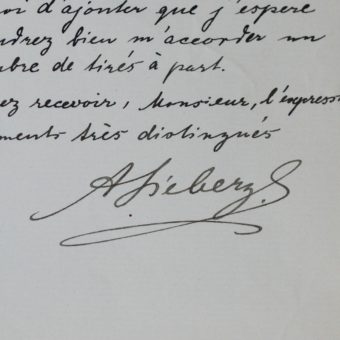 oi d'ajouter que j'espère
udrez bien m'accorder un
bre de tirés à part.
ez recevoir, Monsieur, l'express
ments très distingués
A. Sieberg